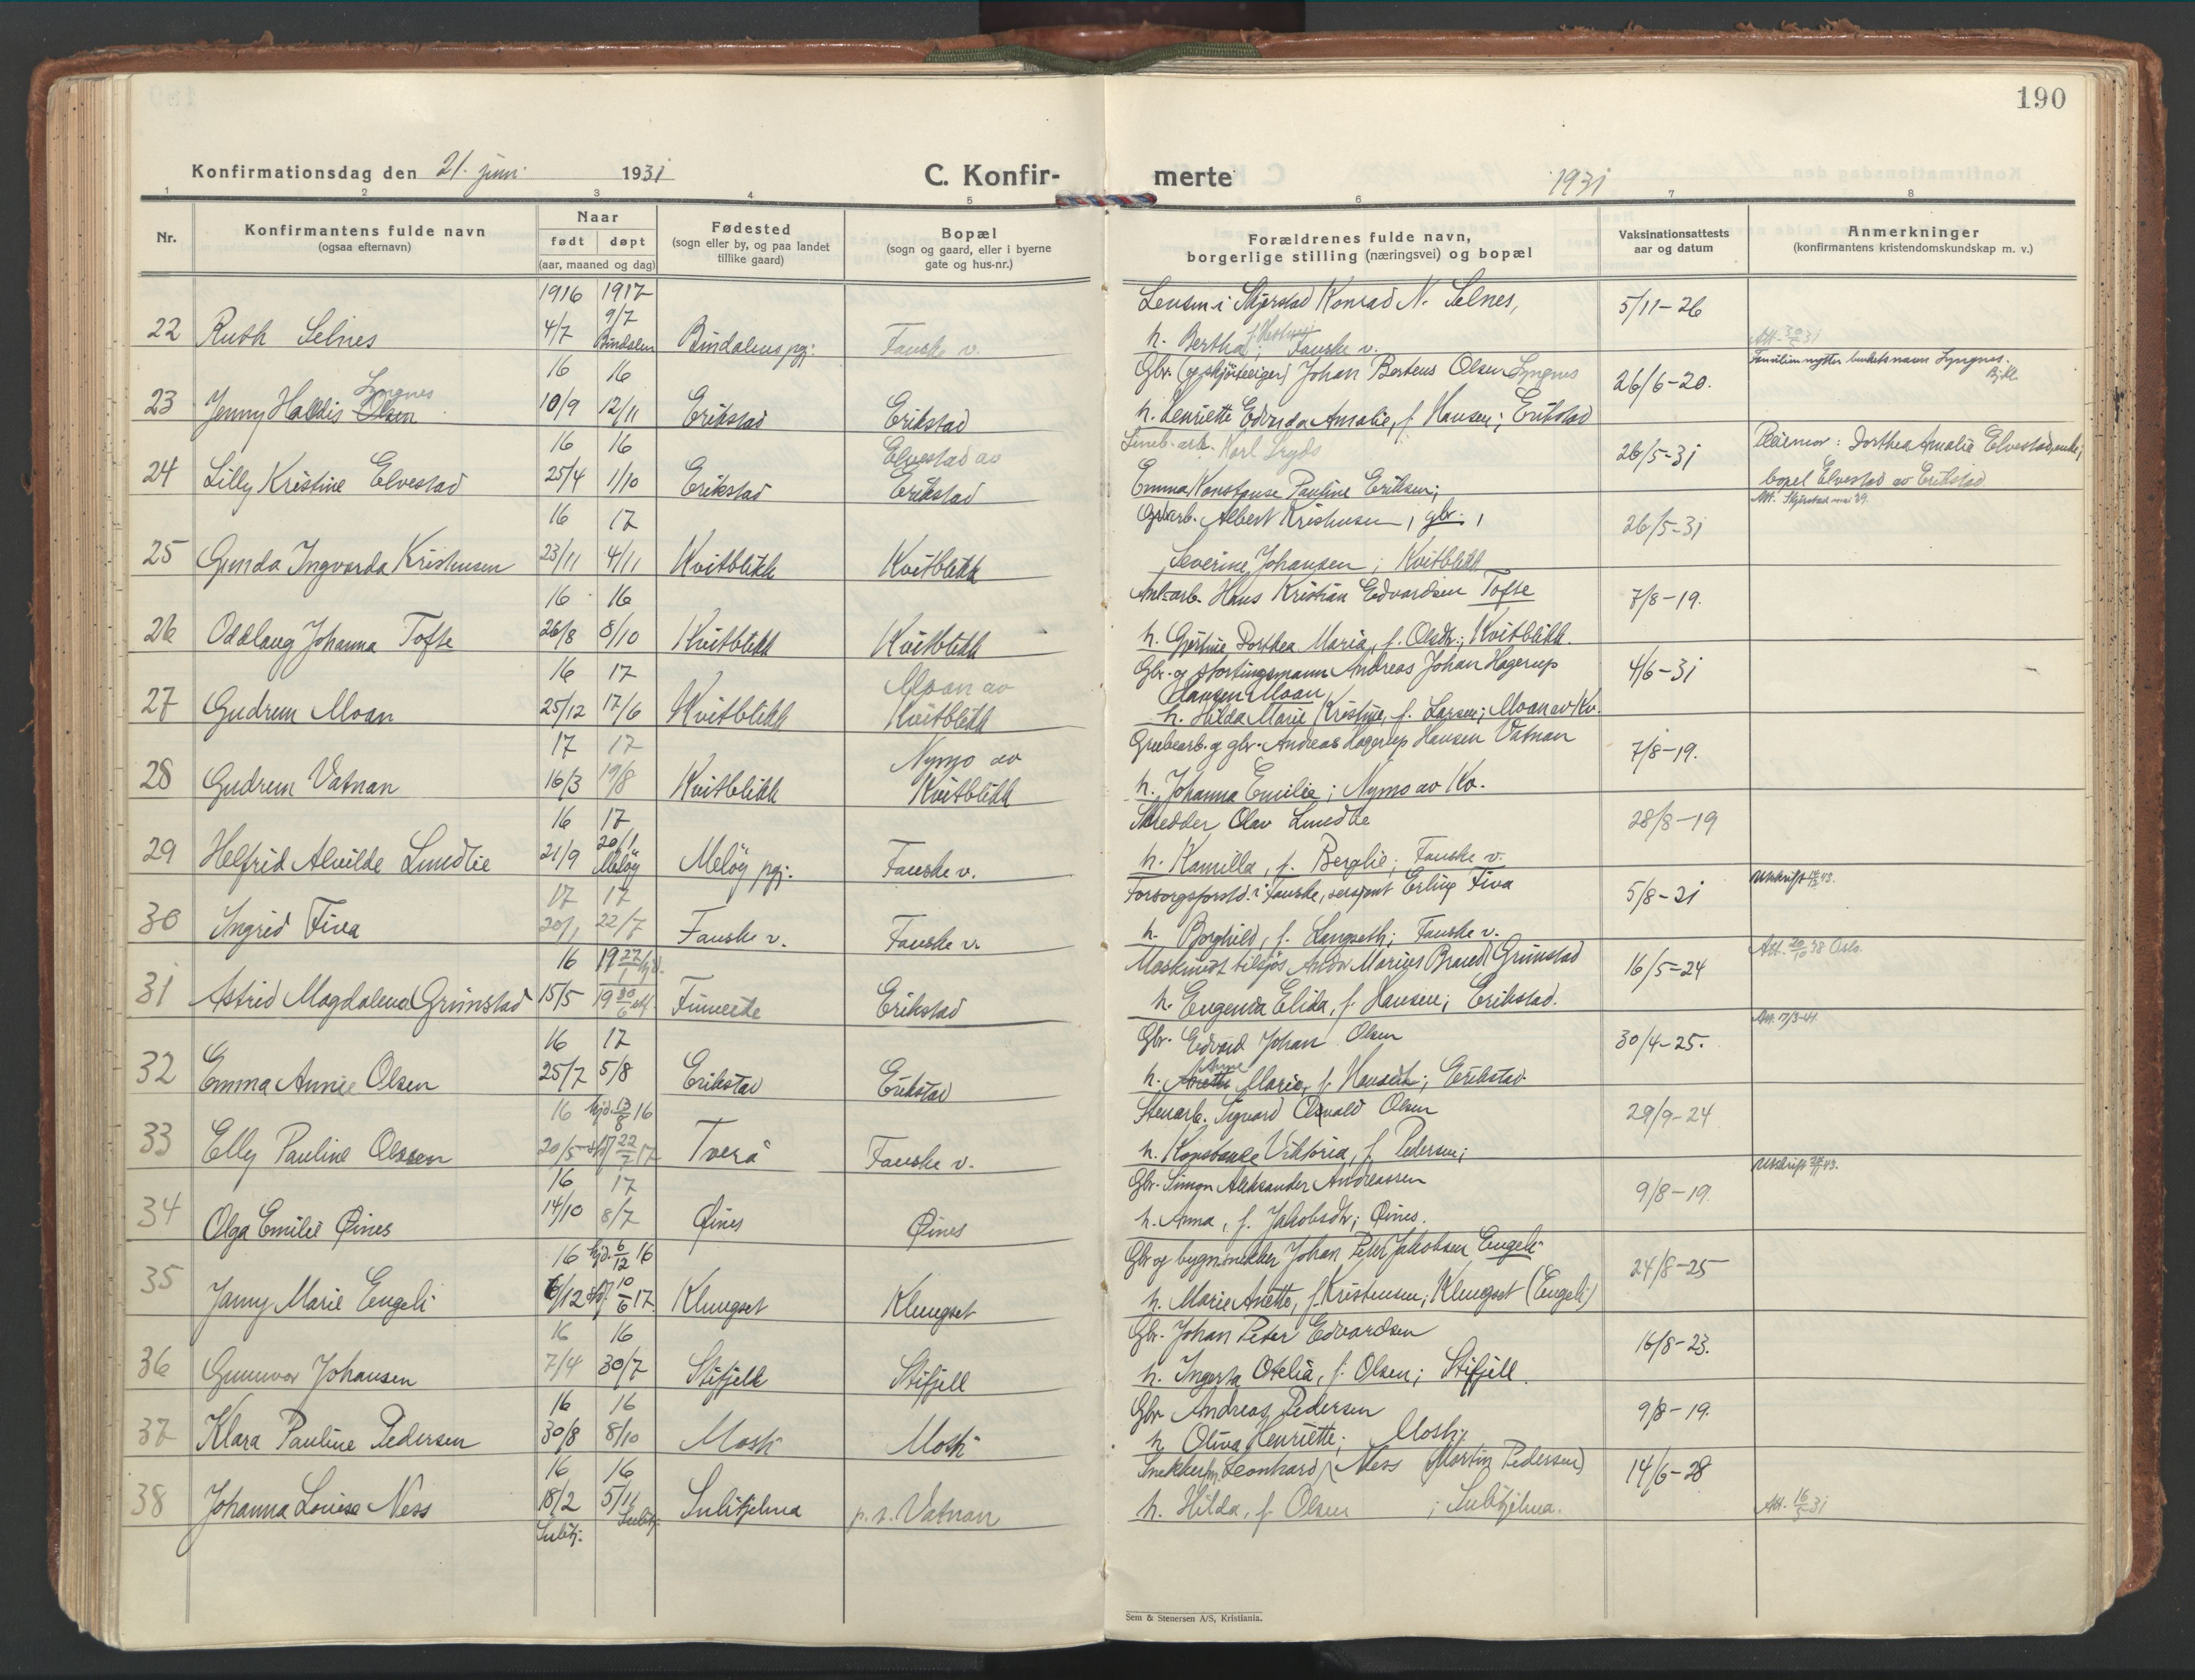 190
Konfirmationsdag den 21. juni 1931
C. Konfir-
merte
1931
1 2 3 4 5 6 7 8
Nr.
Konfirmantens fulde navn
(ogsaa efternavn)
Naar
født døpt
(aar, maaned og dag)
Fødested
(sogn eller by, og paa landet
tillike gaard)
Bopæl
(sogn og gaard, eller i byerne
gate og hus-nr.)
Forældrenes fulde navn,
borgerlige stilling (næringsvei) og bopæl
Vaksinationsattests
aar og datum
Anmerkninger
(konfirmantens kristendomskundskap m. v.)
1916 1917 Lensm. i Skjerstad Konrad N. Selnes, 5/11-26
9/7
22 Ruth Selnes 4/7 Bindalen Bindalens pgj. Fauske v. h. Bertha; Fauske v. Att. 31
16 16 Gbr. (og skjøiteeiger) Johan Bertens Olsen Lyngnes 26/6-20. Familien nytter bruksnavn Lyngnes.
Lyngnes
23 Jenny Haldis Olsen 10/9 12/11 Erikstad Erikstad h. Henriette Edvarda Amalie, f. Hansen; Erikstad
16 16 Elvestad av Karl 26/5-31 Pleiemor: Dorthea Amalie Elvestad, enke,
24 Lilly Kristine Elvestad 25/4 1/10 Erikstad Erikstad Emma Konstanse Pauline Eriksen; bopel Elvestad av Erikstad
Att. Skjerstad mai 39.
16 17 Albert Kristensen, gbr., 26/5-31
25 Gunda Ingvarda Kristensen 23/11 4/11 Kvitblikk Kvitblikk Severine Johansen; Kvitblikk
16 16 Anl-arb. Hans Kristian Edvardsen Tofte 7/8-19.
26 Oddlaug Johanna Tofte 26/8 8/10 Kvitblikk Kvitblikk h. Gjertine Dorthea Maria, f. Olsdtr.; Kvitblikk.
16 17 Moan av Gbr. og stortingsmann Andreas Johan Hagerup 4/6-31
Hansen Moan
27 Gudrun Moan 25/12 17/6 Kvitblikk Kvitblikk h. Hilda Marie Kristine, f. Larsen; Moan av Kv.
17 17 Nymo av Grubearb. og gbr. Andreas Hagerup Hansen Vatnan 7/8-19.
28 Gudrun Vatnan 16/3 19/8 Kvitblikk Kvitblikk h. Johanna Emilie; Nymo av Kv.
16 17 Skredder Olav Lundlie 28/8-19
20/1
29 Helfrid Alvilde Lundlie 21/9 Meløy Meløy pgj. Fauske v. h. Kamilla, f. Berglie; Fauske v.
17 17 Forsorgsforst. i Fauske, sersjant Erling Fiva 5/8-21 Utskrift 43.
30 Ingrid Fiva 20/1 22/7 Fauske v. Fauske v. h. Borghild, f. Langseth; Fauske v.
16 19 27/1 hjd. Maskinist tilsjøs Andr. Marius Brand Grimstad 16/5-24 Att. 20/10 38 Oslo.
31 Astrid Magdalena Grimstad 15/5 19 30/6 stf. Finneide Erikstad h. Eugenia Elida, f. Hansen; Erikstad.
16 17 Gbr. Edvard Johan Olsen 30/4-25. Att. 17/3-41.
Anne
32 Emma Annie Olsen 25/7 5/8 Erikstad Erikstad h. Anette Marie, f. Hansdtr.; Erikstad.
16 hjd. 13/8 16 Stenarb. Sigvard Osvald Olsen 29/9-24
33 Elly Pauline Olsen 20/5 stf. 22/7 17 Tverå Fauske v. h. Konstanse Viktoria, f. Pedersen;
16 17 Gbr. Simon Aleksander Andreassen 9/8-19. Utskrift 43.
34 Olga Emilie Øines 14/10 8/7 Øines Øines h. Anna, f. Jakobsdtr.; Øines.
16 hjd. 6/12 16 Gbr. og bygn.snekker Johan Peter Jakobsen Engeli 24/8-25
35 Janny Marie Engeli 6/12 stf. 10/6 17. Klungset Klungset h. Marie Anette, f. Kristensen; Klungset (Engeli)
16 16 Gbr. Johan Peter Edvardsen 16/8-23.
36 Gunnvor Johansen 7/4 30/7 Stifjell Stifjell h. Ingerta Otelia, f. Olsen; Stifjell.
16 16 Gbr. Andreas Pedersen 9/8-19.
37 Klara Pauline Pedersen 30/8 8/10 Mosti Mosti h. Oliva Henriette; Mosti.
16 16 Leonhard Ness (Martin Pedersen) 14/6-28
38 Johanna Louise Ness 18/2 5/11 Sulitjelma p.t. Vatnan h. Hilda, f. Olsen; Sulitjelma. Att. 16/5 31
Sulitj. Sulitj.
Sem & Stenersen A/S, Kristiania.